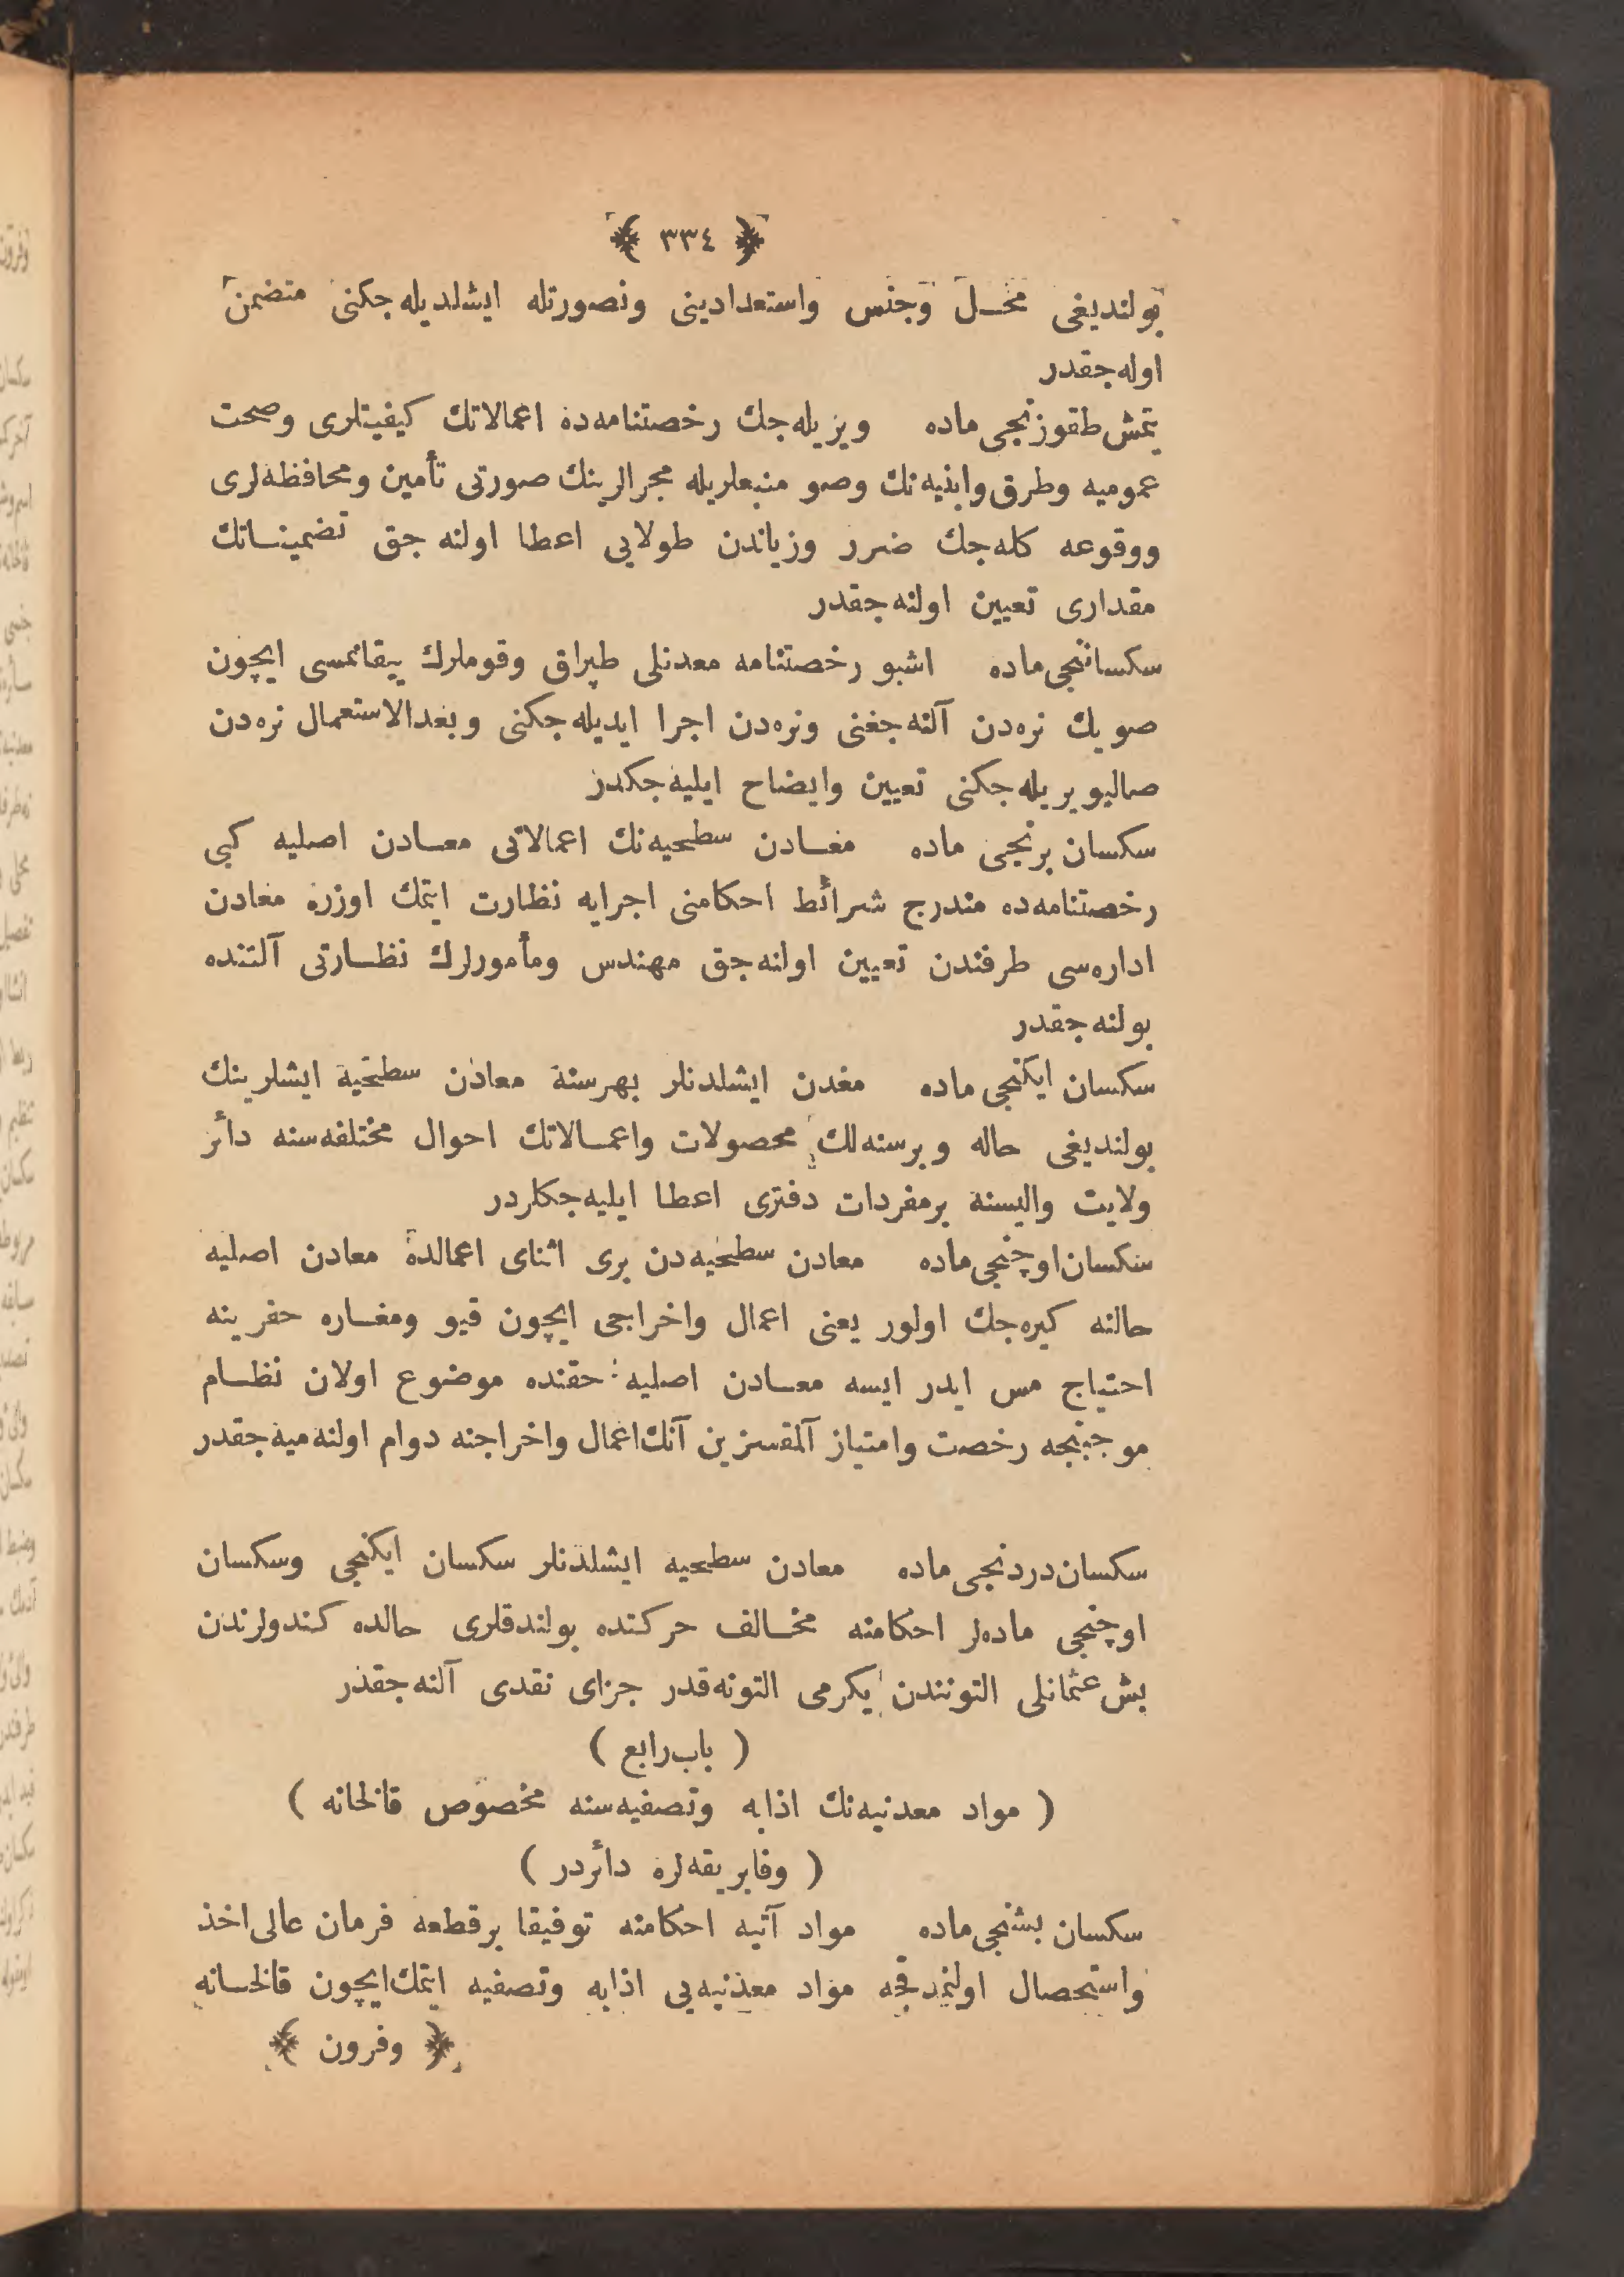 ﴿ ٣٣٤ ﴾
بولنديغى محل وجنس واستعدادينى ونصورتله ايشلديله‌جكنى متضمن
اوله‌جقدر
يتمش طقوزنجى ماده ويريله‌جك رخصتنامه‌ده اعمالاتك كيفيتلرى وصحت
عموميه وطرق وابنيه‌نك وصو منبعلريله مجرالرينك صورتى تأمين ومحافظه‌لرى
ووقوعه كله‌جك ضرر وزياندن طولايى اعطا اولنه‌جق تضميناتك
مقدارى تعيين اولنه‌جقدر
سكساننجى ماده اشبو رخصتنامه معدنلى طپراق وقوملرك ييقانمسى ايچون
صويك نره‌دن آلنه‌جغنى ونره‌دن اجرا ايديله‌جكنى وبعدالاستعمال نره‌دن
صاليويريله‌جكنى تعيين وايضاح ايليه‌جكدر
سكسان برنجى ماده معادن سطحيه‌نك اعمالاتى معادن اصليه كبى
رخصتنامه‌ده مندرج شرائط احكامنى اجرايه نظارت ايتمك اوزره معادن
اداره‌سى طرفندن تعيين اولنه‌جق مهندس ومأمورلرك نظارتى آلتنده
بولنه‌جقدر
سكسان ايكنجى ماده معدن ايشلدنلر بهرسنه معادن سطحيه ايشلرينك
بولنديغى حاله وبرسنه‌لك محصولات واعمالاتك احوال مختلفه‌سنه دائر
ولايت واليسنه برمفردات دفترى اعطا ايليه‌جكلردر
سكسان اوچنجى ماده معادن سطحيه‌دن برى اثناى اعمالده معادن اصليه
حالنه كيره‌جك اولور يعنى اعمال واخراجى ايچون قيو ومغاره حفرينه
احتياج مس ايدر ايسه معادن اصليه حقنده موضوع اولان نظام
موجبنجه رخصت وامتياز آلمقسزين آنك اعمال واخراجنه دوام اولنه‌ميه‌جقدر
سكسان دردنجى ماده معادن سطحيه ايشلدنلر سكسان ايكنجى وسكسان
اوچنجى ماده‌لر احكامنه مخالف حركتده بولندقلرى حالده كندولرندن
بش عثمانلى التونندن يكرمى التونه‌قدر جزاى نقدى آلنه‌جقدر
( باب رابع )
( مواد معدنيه‌نك اذابه وتصفيه‌سنه مخصوص قالخانه )
( وفابريقه‌لره دائردر )
سكسان بشنجى ماده مواد آتيه احكامنه توفيقا برقطعه فرمان عالى اخذ
واستحصال اولنمدقجه مواد معدنيه‌يى اذابه وتصفيه ايتمك ايچون قالخانه
﴿ وفرون ﴾